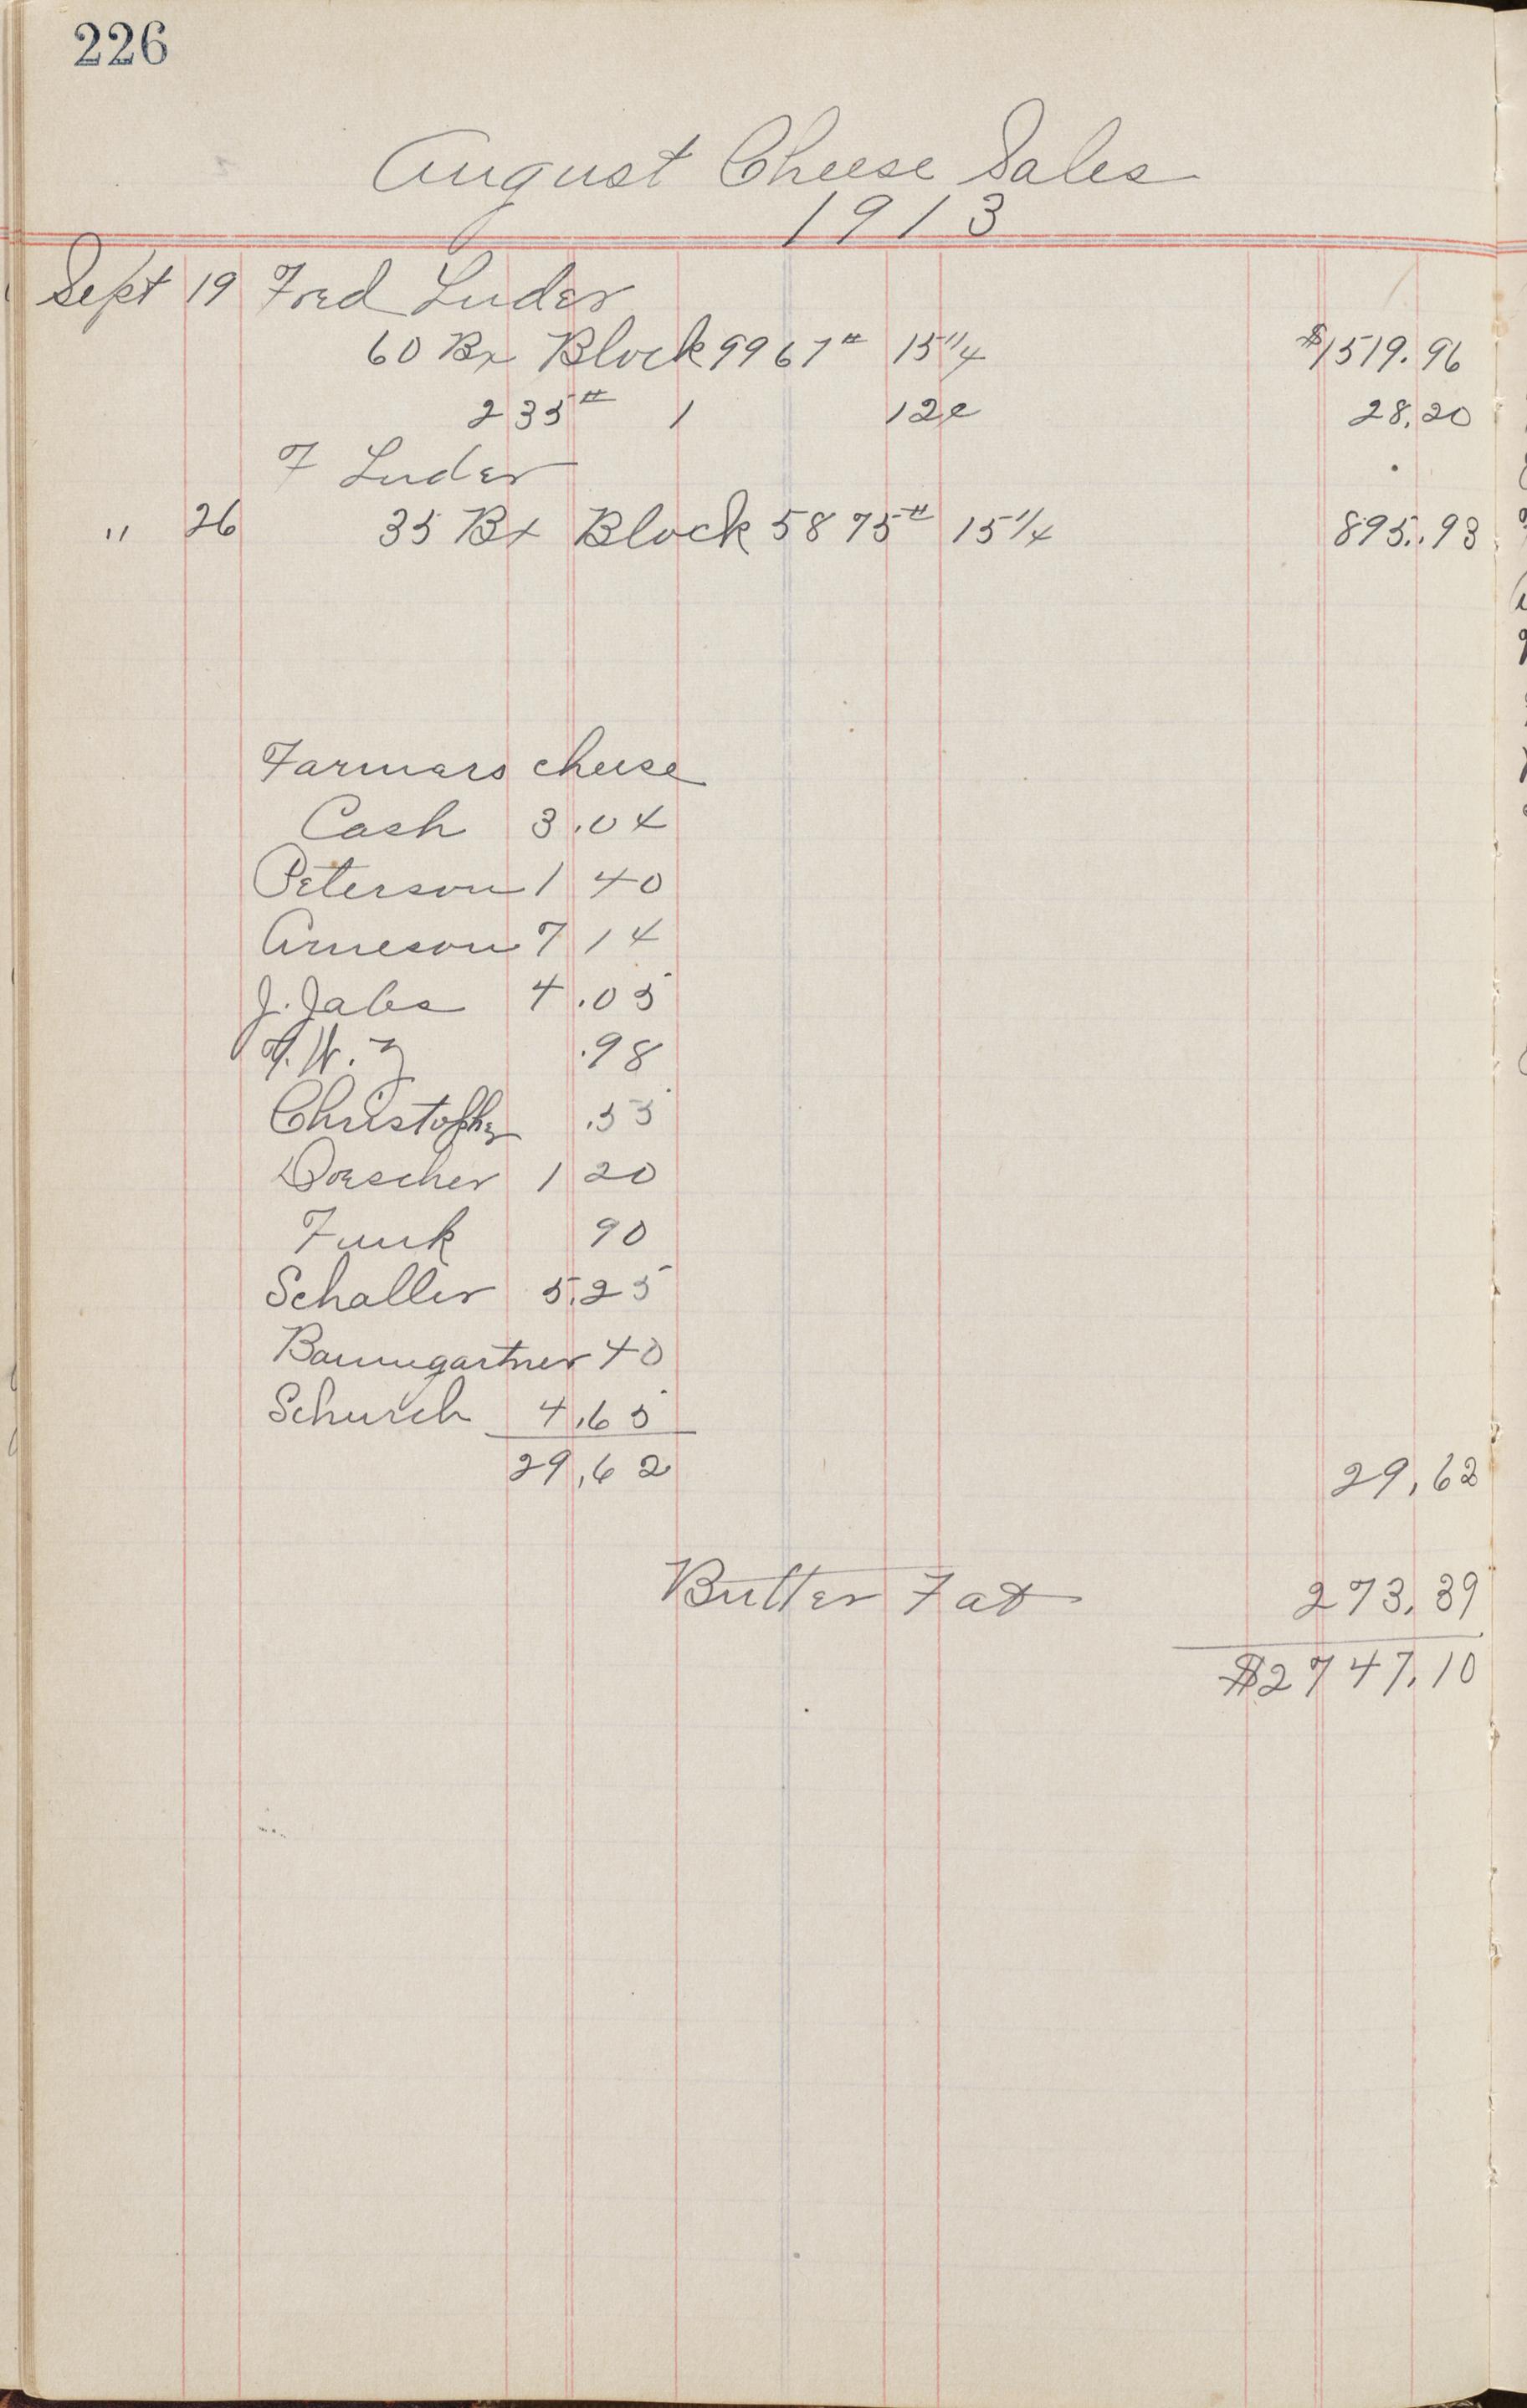 226
August Cheese Sales
1913
Sept 19 Fred Luder
60 Bx Block 9967# 15 1/4 $1519.96
235# 1 12c 28.20
F Luder
" 26 35 Bx Block 5875# 15 1/4 895.93
Farmars cheese
Cash 3.04
Peterson 1 40
Arneson 7 14
J. Jabs 4.05
.98
Christopher .55
Doescher 1 20
Funk 90
Schaller 5.25
Baumgartner 40
Schurch 4.65
29.62 29.62
Butter Fat 273.39
$2747.10